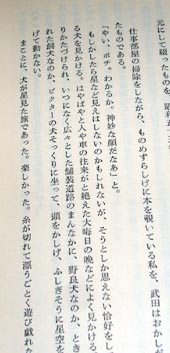 元にして綴ったものを、昭和
仕事部屋の掃除をしながら、ものめずらしげに本を覗いている私を、武田はおかしが
ったものである。
「やい、ポチ。わかるか。神妙な顔だなあ」と。
もしかしたら星など見えはしないのかもしれないが、そうとしか思えない恰好をし
る犬を見かける。はやばやと人や車の往来がと絶えた大晦日の晩などによく見かける。
りかたづけられ、いつになく広々とした舗装道路のまんなかに、野良犬なのか、とき
れた飼犬なのか、ビクターの犬そっくりに坐って、頭をかしげ、ふしぎそうに星空を
げて動かない。
まことに、犬が星見た旅であった。楽しかった。糸が切れて漂うごとく遊び戯れた